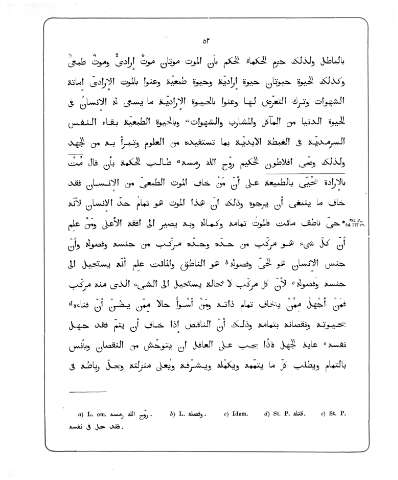 ٥٢
بالباطل ولذلك جزم الحكماء الحكم بأن الموت موتان موت إرادىّ وموت طبيعىّ
وكذلك الحيوة حيوتان حيوة إراديّة وحيوة طبعيّة وعنوا بالموت الإرادىّ إماتة
الشهوات وترك التعرّض لها وعنوا بالحيوة الإراديّة ما يسعى له الإنسان فى
الحيوة الدنيا من المآكل والمشارب والشهوات وبالحيوة الطبعيّة بقاء النفس
السرمديّة فى الغبطة الأبديّة بما تستفيده من العلوم وتبرأ به من الجهد
ولذلك وصّى افلاطون الحكيم روّح الله رمسه طالب الحكمة بأن قال مُتْ
بالإرادة تَحْىَ بالطبيعة على أنّ مَنْ خاف الموت الطبعىّ من الإنسان فقد
خاف ما ينبغى أن يرجوه وذلك أنّ هذا الموت هو تمام حدّ الإنسان لأنه
حىّ ناطق مائت فالموت تمامه وكماله وبه يصير الى أفقه الأعلى ومَنْ علم
أنّ كلّ شىء هو مركّب من حدّه وحدّه مركّب من جنسه وفصوله وأنّ
جنس الإنسان هو الحىّ وفصوله هو الناطق والمائت علم أنّه يستحيل الى
جنسه وفصوله لأنّ كلّ مركّب لا محالة يستحيل الى الشىء الذى منه مركّب
فمن أجهل ممّن يخاف تمام ذاته ومَنْ أسوأ حالا ممن يظنّ أنّ فناءه
بحيوته ونقصانه بتمامه وذلك أنّ الناقص إذا خاف أن يتمّ فقد جهل
نفسه غاية الجهل فاذا يجب على العاقل ان يتوحّش من النقصان ويأنس
بالتمام ويطلب كلّ ما يتمّمه ويكمّله ويشرّفه ويُعلى منزلته ويحلّ رباطه فى
a) L. om. روّح الله رمسه. b) L. وفصله. c) Idem. d) St. P. فناه. e) St. P.
فقد جهل فى نفسه.